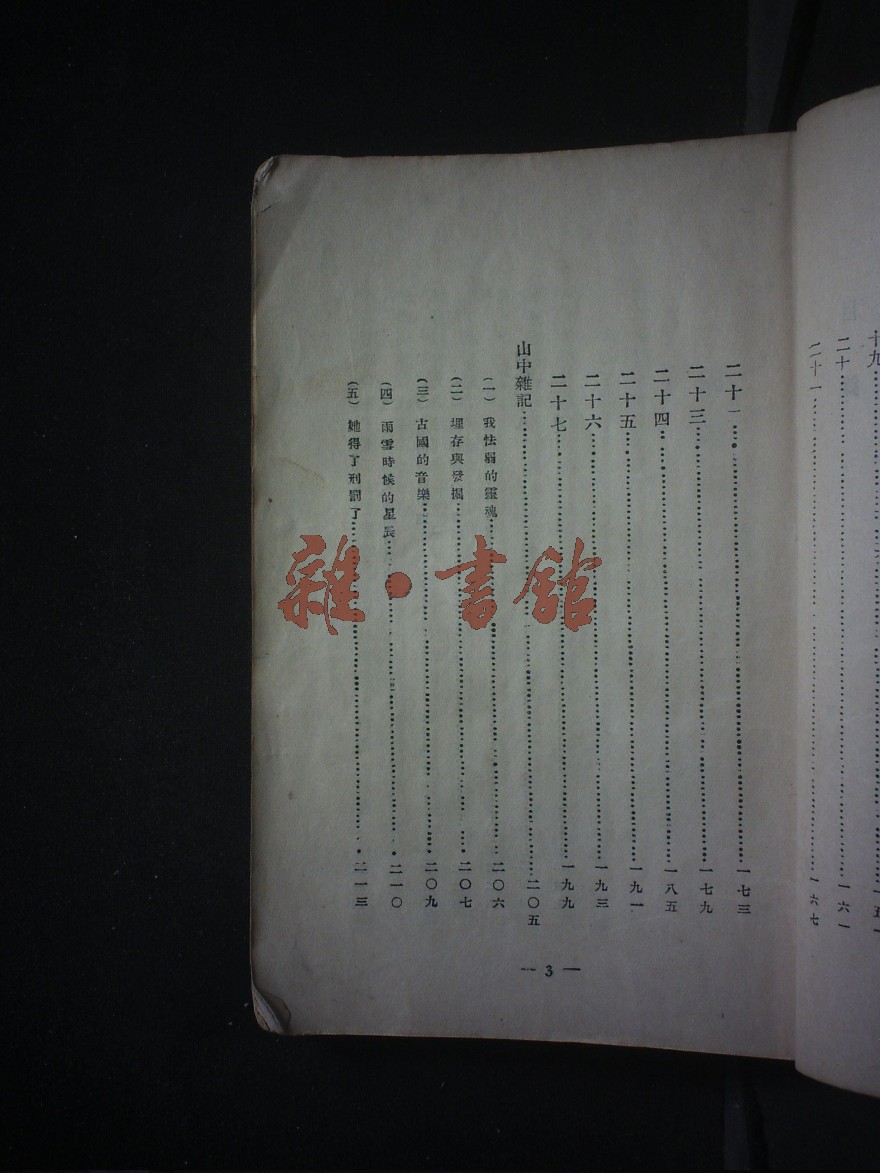 十九……一五一
二十……一六一
二十一……一六七
二十一……一七三
二十三……一七九
二十四……一八五
二十五……一九一
二十六……一九三
二十七……一九九
山中雜記……二〇五
（一）我怯弱的靈魂……二〇六
（二）埋存與發掘……二〇七
（三）古國的音樂……二〇九
（四）雨雪時候的星辰……二一〇
（五）她得了刑罰了……二一三
— 3 —
雜·書館